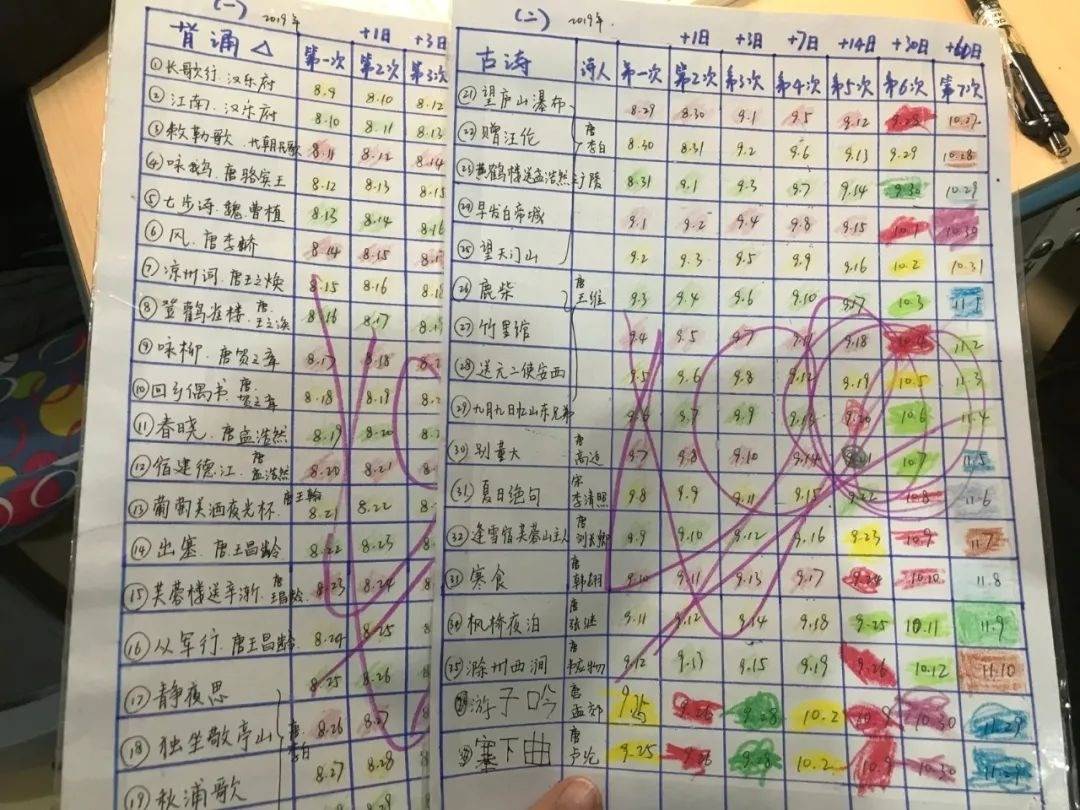 (一) 2019年
+1日 +3日
背诵△ 第一次 第2次 第3次
①长歌行.汉乐府 8.9 8.10 8.12
②江南.汉乐府 8.10 8.11 8.13
③敕勒歌.北朝民歌 8.11 8.12 8.14
④咏鹅.唐骆宾王 8.12 8.13 8.15
⑤七步诗.魏.曹植 8.13 8.14 8.16
⑥风.唐李峤 8.14 8.15
⑦凉州词.唐王之焕 8.15 8.16
⑧登鹳雀楼.唐王之涣 8.16 8.17
⑨咏柳.唐贺之章 8.17 8.18
⑩回乡偶书.唐.贺之章 8.18 8.19
⑪春晓.唐孟浩然 8.19 8.20
⑫宿建德江.唐孟浩然 8.20 8.21
⑬葡萄美酒夜光杯.唐王翰 8.21 8.22
⑭出塞.唐王昌龄 8.22 8.23
⑮芙蓉楼送辛渐.唐王昌龄 8.23 8.24
⑯从军行.唐王昌龄 8.24 8.25
⑰静夜思 8.25 8.26
⑱独坐敬亭山 唐.李白 8.26 8.27
⑲秋浦歌 8.27 8.28
(二) 2019年.
+1日 +3日 +7日 +14日 +30日 +60日
古诗 诗人 第一次 第2次 第3次 第4次 第5次 第6次 第7次
㉑望庐山瀑布 8.29 8.30 9.1 9.5 9.12 9.28 10.27
㉒赠汪伦 唐李白 8.30 8.31 9.2 9.6 9.13 9.29 10.28
㉓黄鹤楼送孟浩然之广陵 8.31 9.1 9.3 9.7 9.14 9.30 10.29
㉔早发白帝城 9.1 9.2 9.4 9.8 9.15 10.1 10.30
㉕望天门山 9.2 9.3 9.5 9.9 9.16 10.2 10.31
㉖鹿柴 唐王维 9.3 9.4 9.6 9.10 9.17 10.3 11.1
㉗竹里馆 9.4 9.5 9.7 9.11 9.18 10.4 11.2
㉘送元二使安西 9.5 9.6 9.8 9.12 9.19 10.5 11.3
㉙九月九日忆山东兄弟 9.6 9.7 9.9 9.13 9.20 10.6 11.4
㉚别董大 唐高适 9.7 9.8 9.10 9.14 10.7 11.5
㉛夏日绝句 宋李清照 9.8 9.9 9.11 9.15 9.22 10.8 11.6
㉜逢雪宿芙蓉山主人 唐刘长卿 9.9 9.10 9.12 9.16 9.23 10.9 11.7
㉝寒食 唐韩翃 9.10 9.11 9.13 9.17 9.24 10.10 11.8
㉞枫桥夜泊 唐张继 9.11 9.12 9.14 9.18 9.25 10.11 11.9
㉟滁州西涧 唐韦应物 9.12 9.13 9.15 9.19 9.26 10.12 11.10
游子吟 唐孟郊 9.25 9.26 9.28 10.2 10.9 10.30 11.29
塞下曲 唐卢纶 9.25 9.26 9.28 10.2 10.9 10.30 11.29